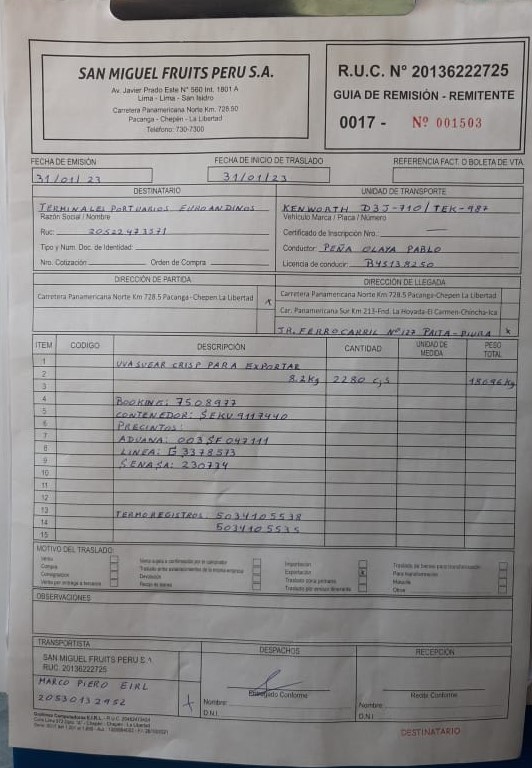 SAN MIGUEL FRUITS PERU S.A.
Av. Javier Prado Este N° 560 Int. 1801 A
Lima - Lima - San Isidro
Carretera Panamericana Norte Km. 728.50
Pacanga - Chepén - La Libertad
Telefono: 730-7300
R.U.C. N° 20136222725
GUIA DE REMISIÓN - REMITENTE
0017 - Nº 001503
FECHA DE EMISIÓN
31/01/23
FECHA DE INICIO DE TRASLADO
31/01/23
REFERENCIA FACT. O BOLETA DE VTA.
DESTINATARIO
TERMINALES PORTUARIOS EUROANDINOS
Razón Social / Nombre
Ruc: 20522473571
Tipo y Num. Doc. de Identidad:
Nro. Cotización Orden de Compra
UNIDAD DE TRANSPORTE
KENWORTH D3J-710/TEK-987
Vehículo Marca / Placa / Número
Certificado de Inscripción Nro.
Conductor: PEÑA OLAYA PABLO
Licencia de conducir: B45138250
DIRECCIÓN DE PARTIDA
Carretera Panamericana Norte Km 728.5 Pacanga-Chepen La Libertad x
DIRECCIÓN DE LLEGADA
Carretera Panamericana Norte Km 728.5 Pacanga-Chepen La Libertad
Car. Panamericana Sur Km 213-Fnd. La Hoyada-El Carmen-Chincha-Ica
JR. FERROCARRIL N°127 PAITA-PIURA x
ITEM CODIGO DESCRIPCIÓN CANTIDAD UNIDAD DE MEDIDA PESO TOTAL
1 UVA SUGAR CRISP PARA EXPORTAR
2 8.2Kg 2280 cjs 18696 Kg
3
4 BOOKING: 7508977
5 CONTENEDOR: SEKU 9117440
6 PRECINTOS:
7 ADUANA: 003SF047111
8 LINEA: G3378573
9 SENASA: 230734
10
11
12
13 TERMOREGISTROS: 5034105538
14 5034105535
15
MOTIVO DEL TRASLADO:
Venta
Compra
Consignación
Venta sujeta a confirmación por el comprador
Traslado entre establecimientos de la misma empresa
Devolución
Recojo de bienes
Importación
Exportación x
Traslado zona primaria
Traslado de bienes para transformación
Otros
OBSERVACIONES
TRANSPORTISTA
SAN MIGUEL FRUITS PERU S.A.
RUC. 20136222725
MARCO PIERO EIRL
20530132952
DESPACHOS
Entregado Conforme
Nombre
D.N.I.
RECEPCIÓN
Recibí Conforme
Nombre
D.N.I.
DESTINATARIO